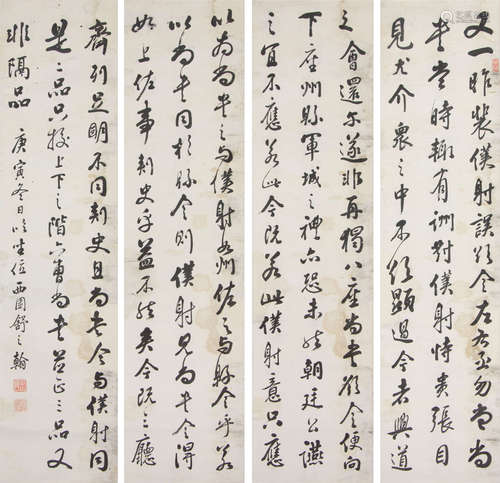 又一昨裴僕射誤欲令左右丞勾當尚
書當時輒有酬對僕射恃貴張目
見尤介眾之中不欲顯過今者興道
之會還尔遂非再猲八座尚書欲令便向
下座州縣軍城之禮亦恐未然朝廷公讌
之宜不應若此今既若此僕射意只應
以為尚書之與僕射若州佐之與縣令乎若
以尚書同於縣令則僕射見尚書令得
如上佐事刺史乎益不然矣今既三廳
齊列足明不同刺史且尚書令與僕射同
是二品只校上下之階六曹尚書並正三品又
非隔品 庚寅冬日坐位西園舒之翰